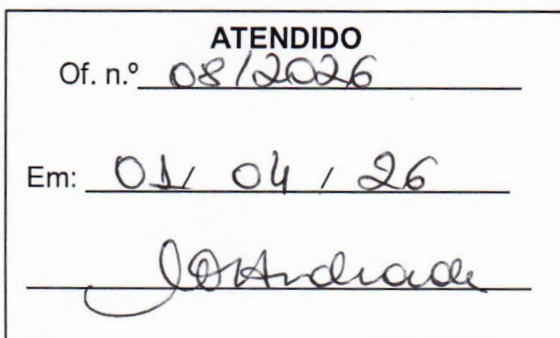 ATENDIDO
Of. n.º 08/2026
Em: 01/ 04 / 26
Andrade